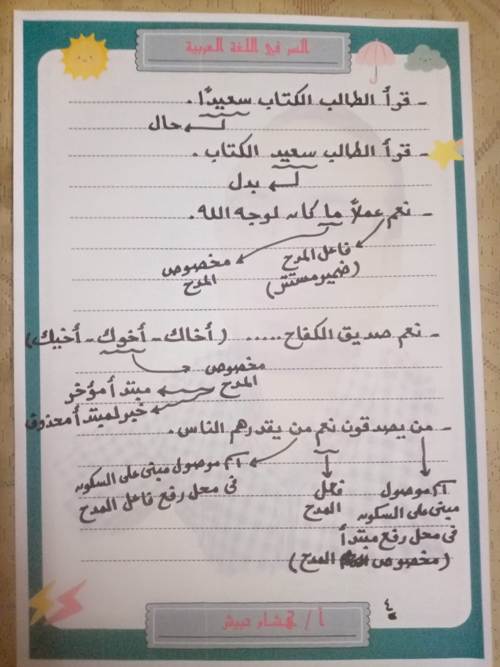 السر في اللغة العربية
- قرأ الطالب الكتاب سعيدًا.
حال
- قرأ الطالب سعيد الكتاب.
بدل
- نعم عملاً ما كان لوجه الله.
فاعل المدح
(ضمير مستتر)
مخصوص
المدح
- نعم صديق الكفاح ..... (أخاك - أخوك - أخيك)
مخصوص
المدح
مبتدأ مؤخر
خبر لمبتدأ محذوف
- من يصدقون نعم من يقدرهم الناس.
اسم موصول مبنى على السكون
فى محل رفع فاعل المدح
فعل
المدح
اسم موصول
مبنى على السكون
فى محل رفع مبتدأ
(مخصوص المدح)
٤
أ / هشام